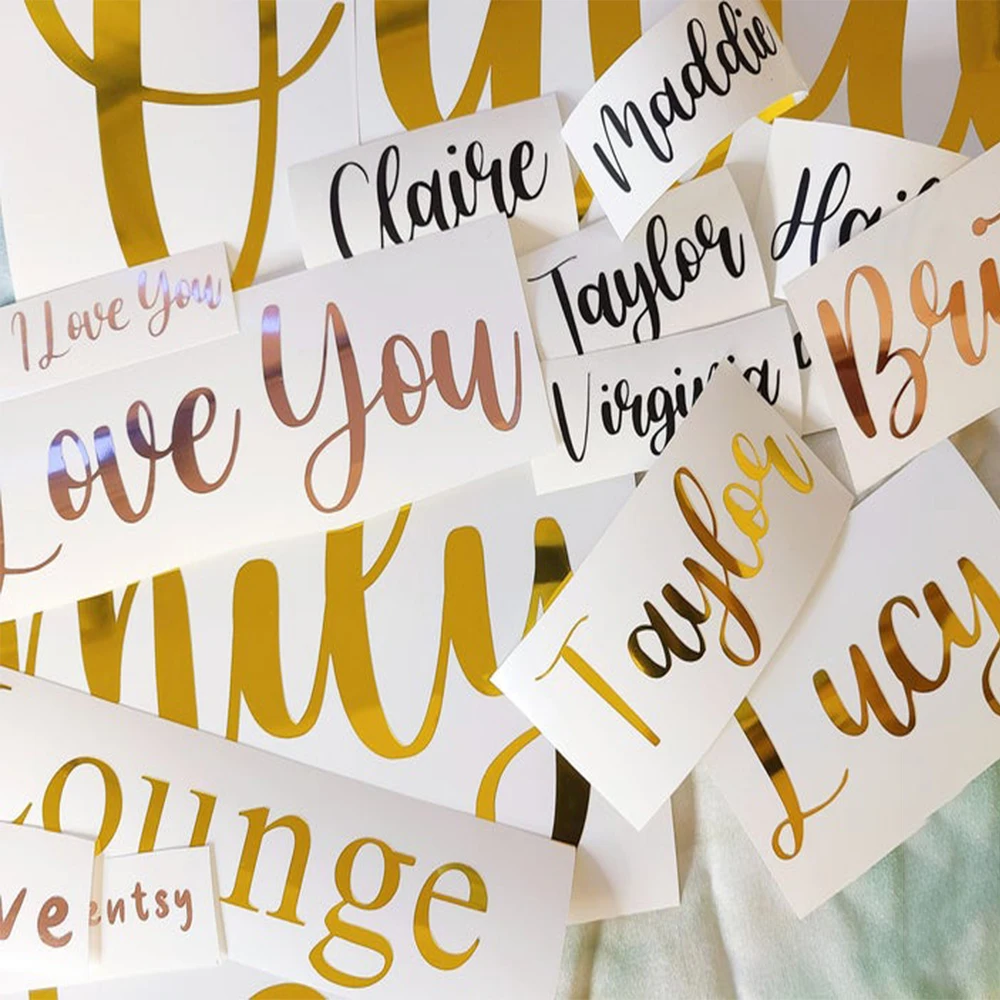 Maddie
Claire
Taylor
I Love You
Love You
Virginia
Taylor
Lucy
ounge
ve
entsy